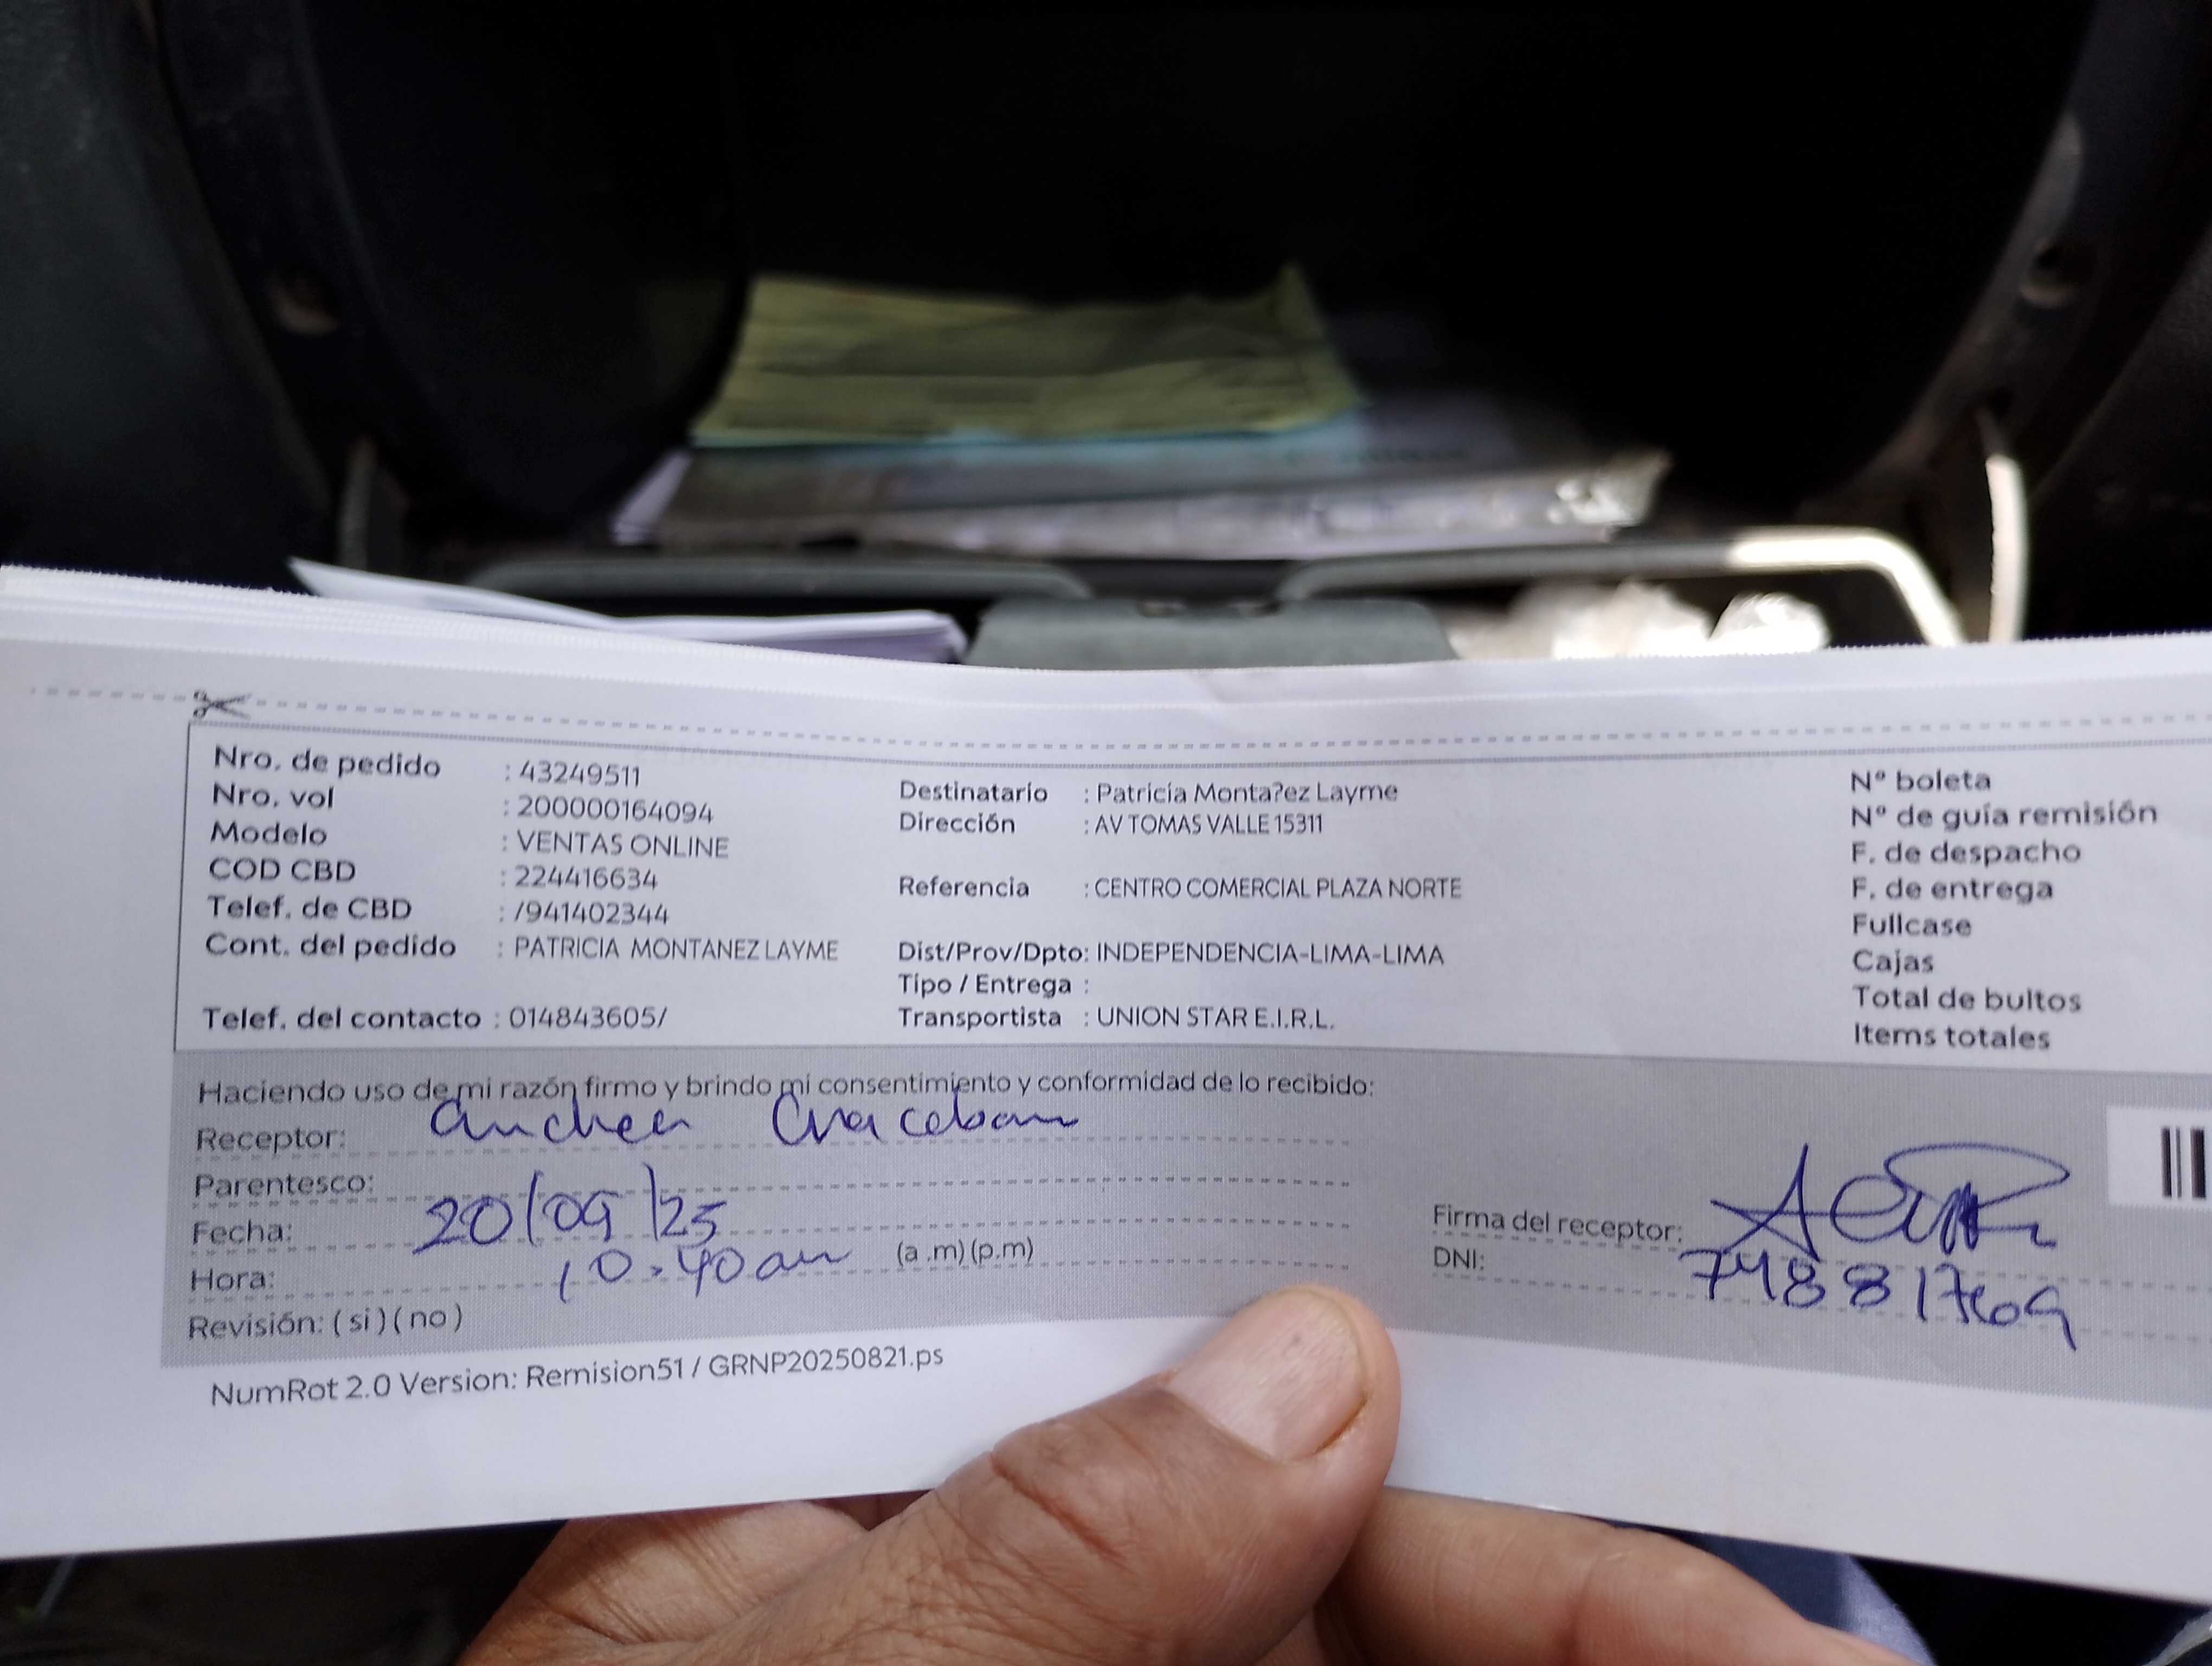 Nro. de pedido : 43249511
Nro. vol : 200000164094
Modelo : VENTAS ONLINE
COD CBD : 224416634
Telef. de CBD : /941402344
Cont. del pedido : PATRICIA MONTANEZ LAYME
Telef. del contacto : 014843605/
Destinatario : Patricia Monta?ez Layme
Dirección : AV TOMAS VALLE 15311
Referencia : CENTRO COMERCIAL PLAZA NORTE
Dist/Prov/Dpto: INDEPENDENCIA-LIMA-LIMA
Tipo / Entrega :
Transportista : UNION STAR E.I.R.L.
Nº boleta
Nº de guía remisión
F. de despacho
F. de entrega
Fullcase
Cajas
Total de bultos
Items totales
Haciendo uso de mi razón firmo y brindo mi consentimiento y conformidad de lo recibido:
Receptor:
Parentesco:
Fecha: 20/09/25
Hora: 10:40am (a .m) (p.m)
Revisión: ( si ) ( no )
Firma del receptor:
DNI:
NumRot 2.0 Version: Remision51 / GRNP20250821.ps